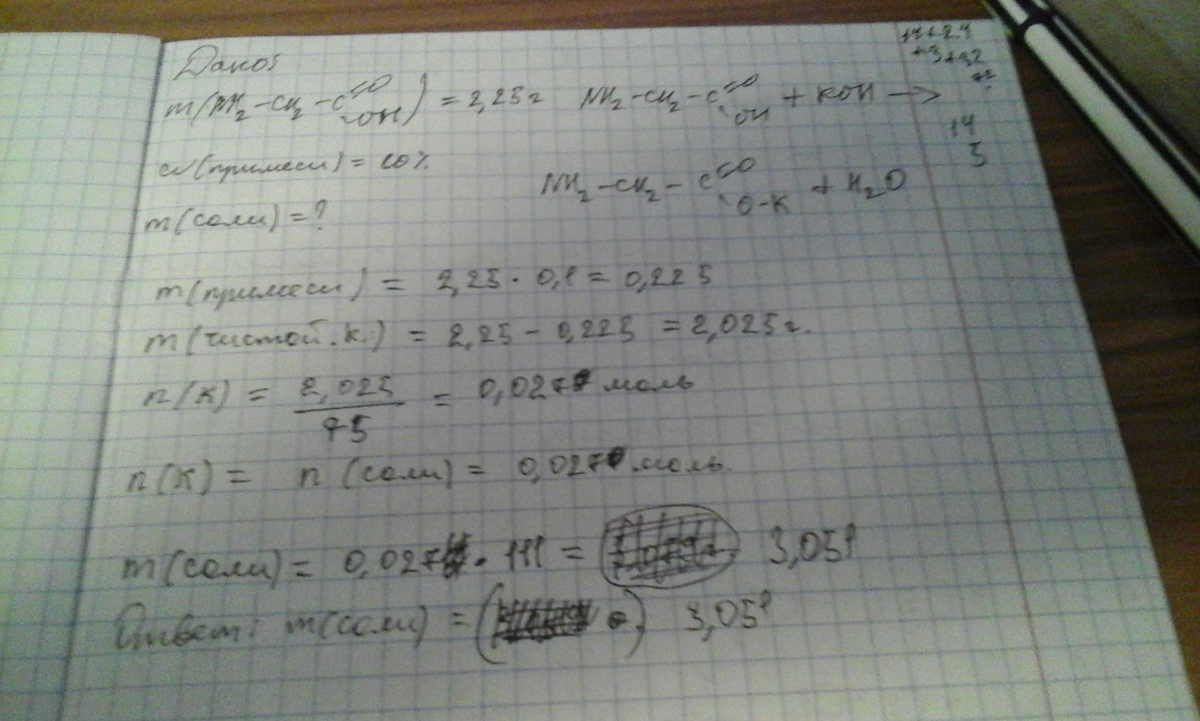 Дано:
m(NH₂-CH₂-C=O-OH) = 2,25 г NH₂-CH₂-C=O-OH + KOH →
w(примеси) = 10%
NH₂-CH₂-C=O-O-K + H₂O
m(соли) = ?
14
5
m(примеси) = 2,25 · 0,1 = 0,225
m(чистой.к.) = 2,25 - 0,225 = 2,025 г.
n(к) = 2,025 / 75 = 0,027 моль
n(к) = n(соли) = 0,027 моль.
m(соли) = 0,027 · 111 = 3,05 г
Ответ: m(соли) = 3,05 г